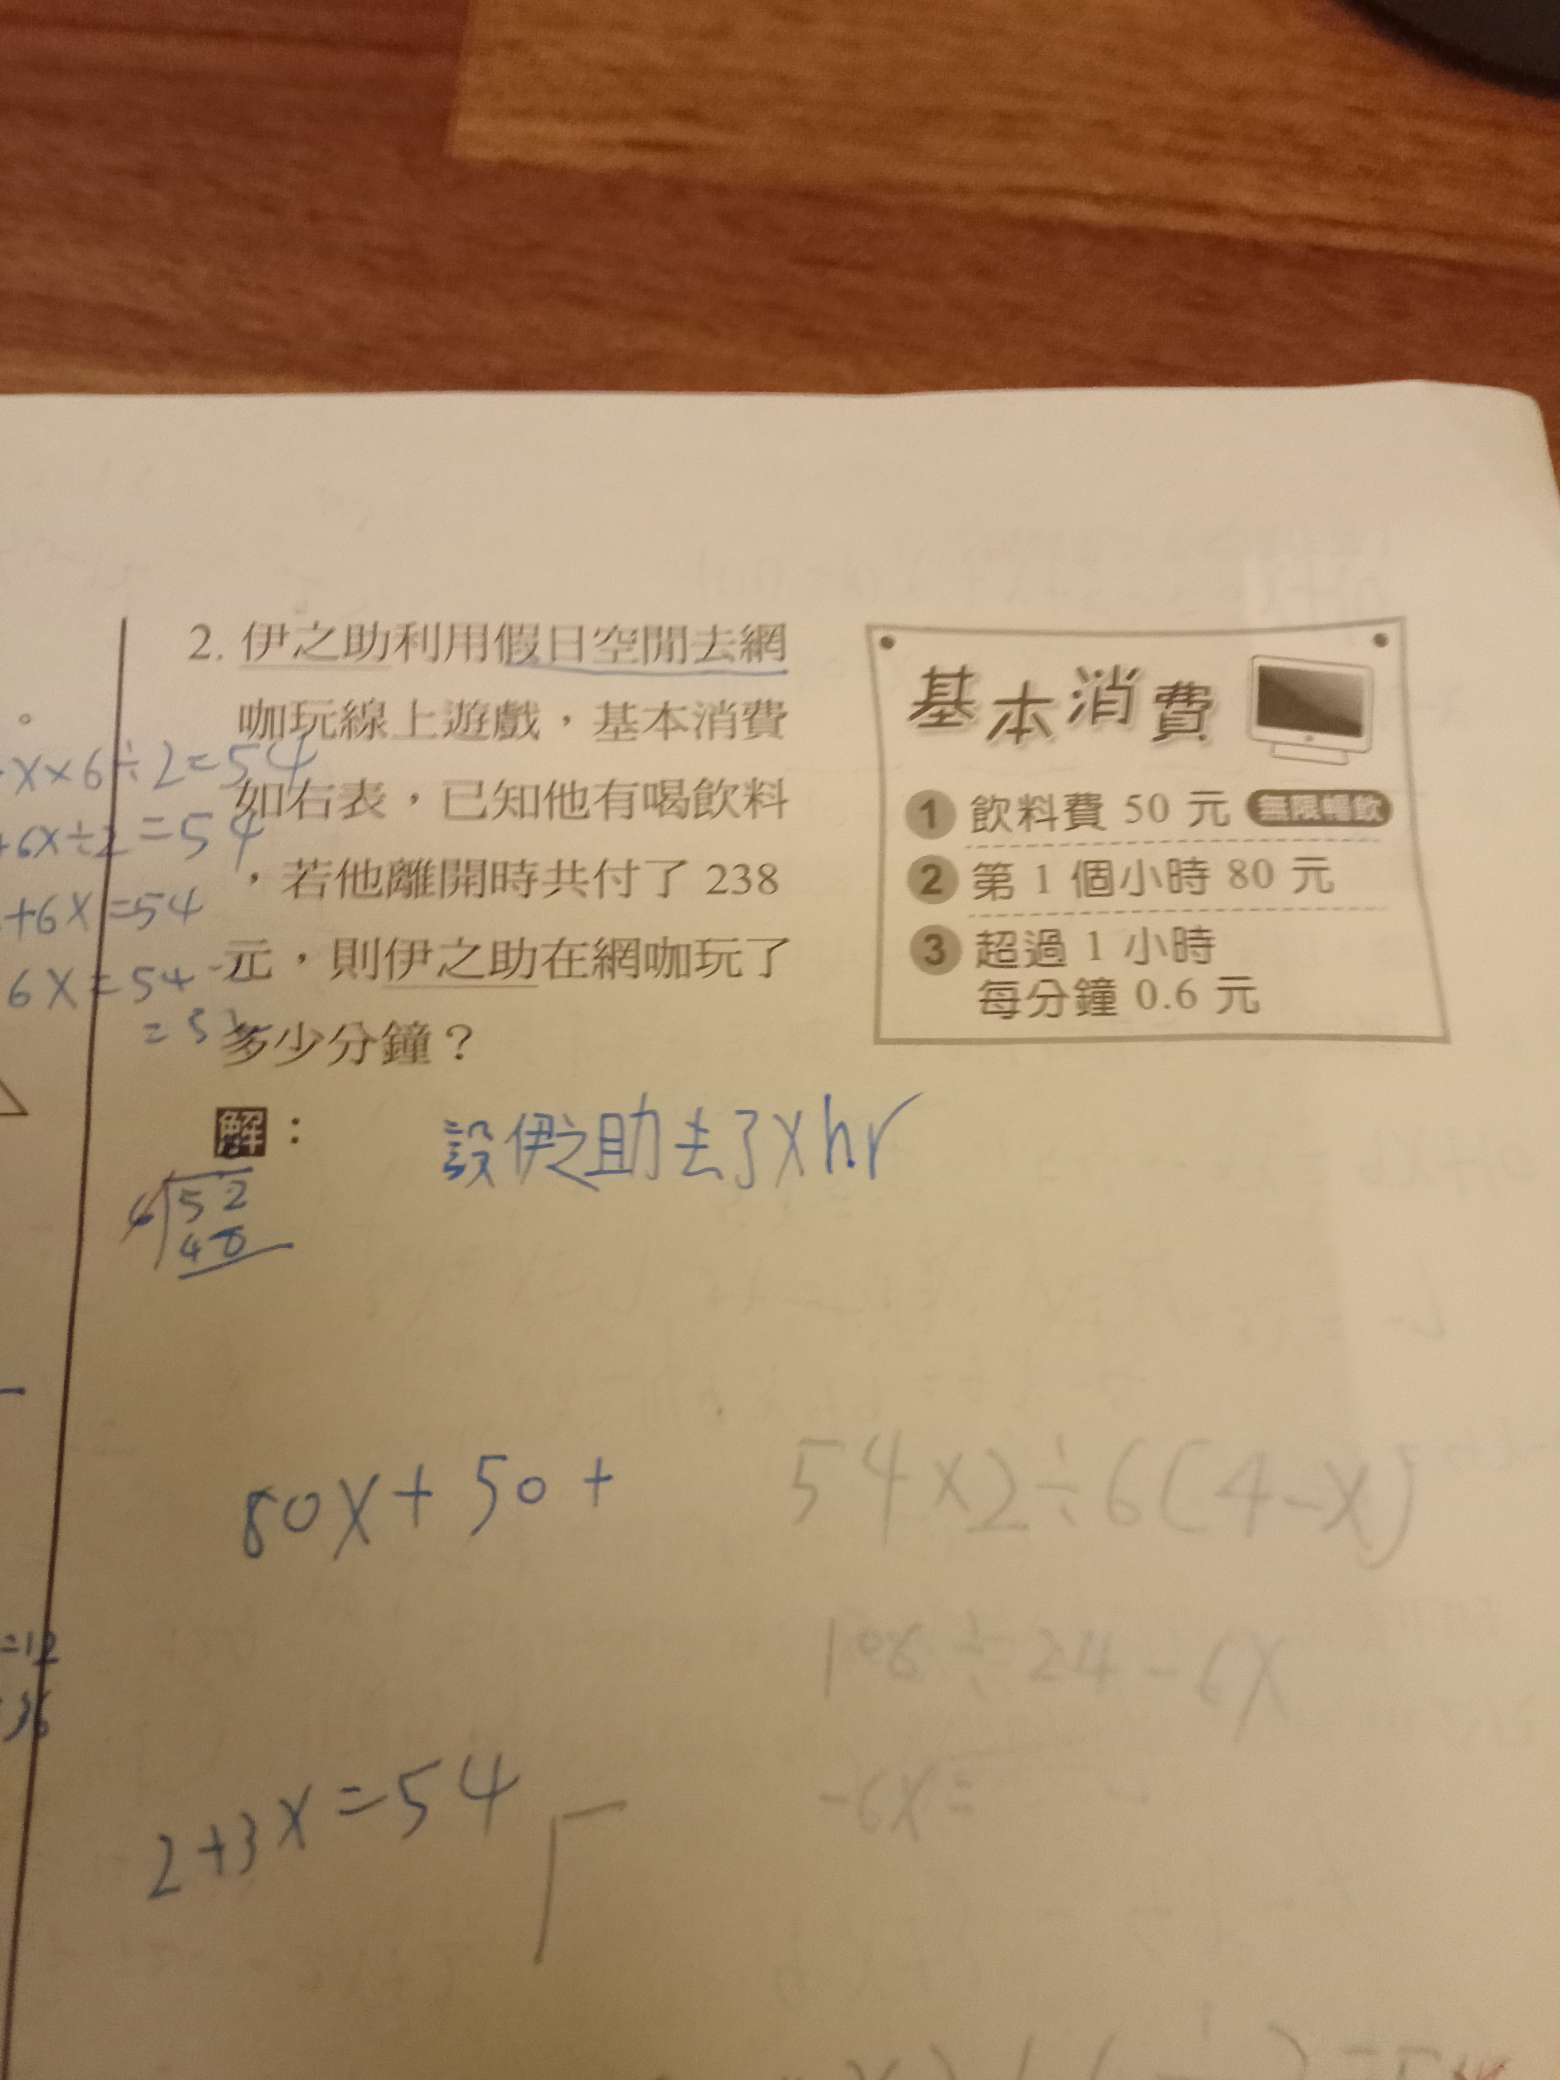 2. 伊之助利用假日空閒去網
咖玩線上遊戲，基本消費
如右表，已知他有喝飲料
，若他離開時共付了 238
元，則伊之助在網咖玩了
多少分鐘？
基本消費
1 飲料費 50 元 無限暢飲
2 第 1 個小時 80 元
3 超過 1 小時
每分鐘 0.6 元
x×6÷2=54
+6x÷2=54
+6x=54
6x=54-
解：
設伊之助去了x hr
6 52
48
80x+50+
54×2÷6(4-x)
108÷24-6x
-6x=
=12
36
2+3x=54